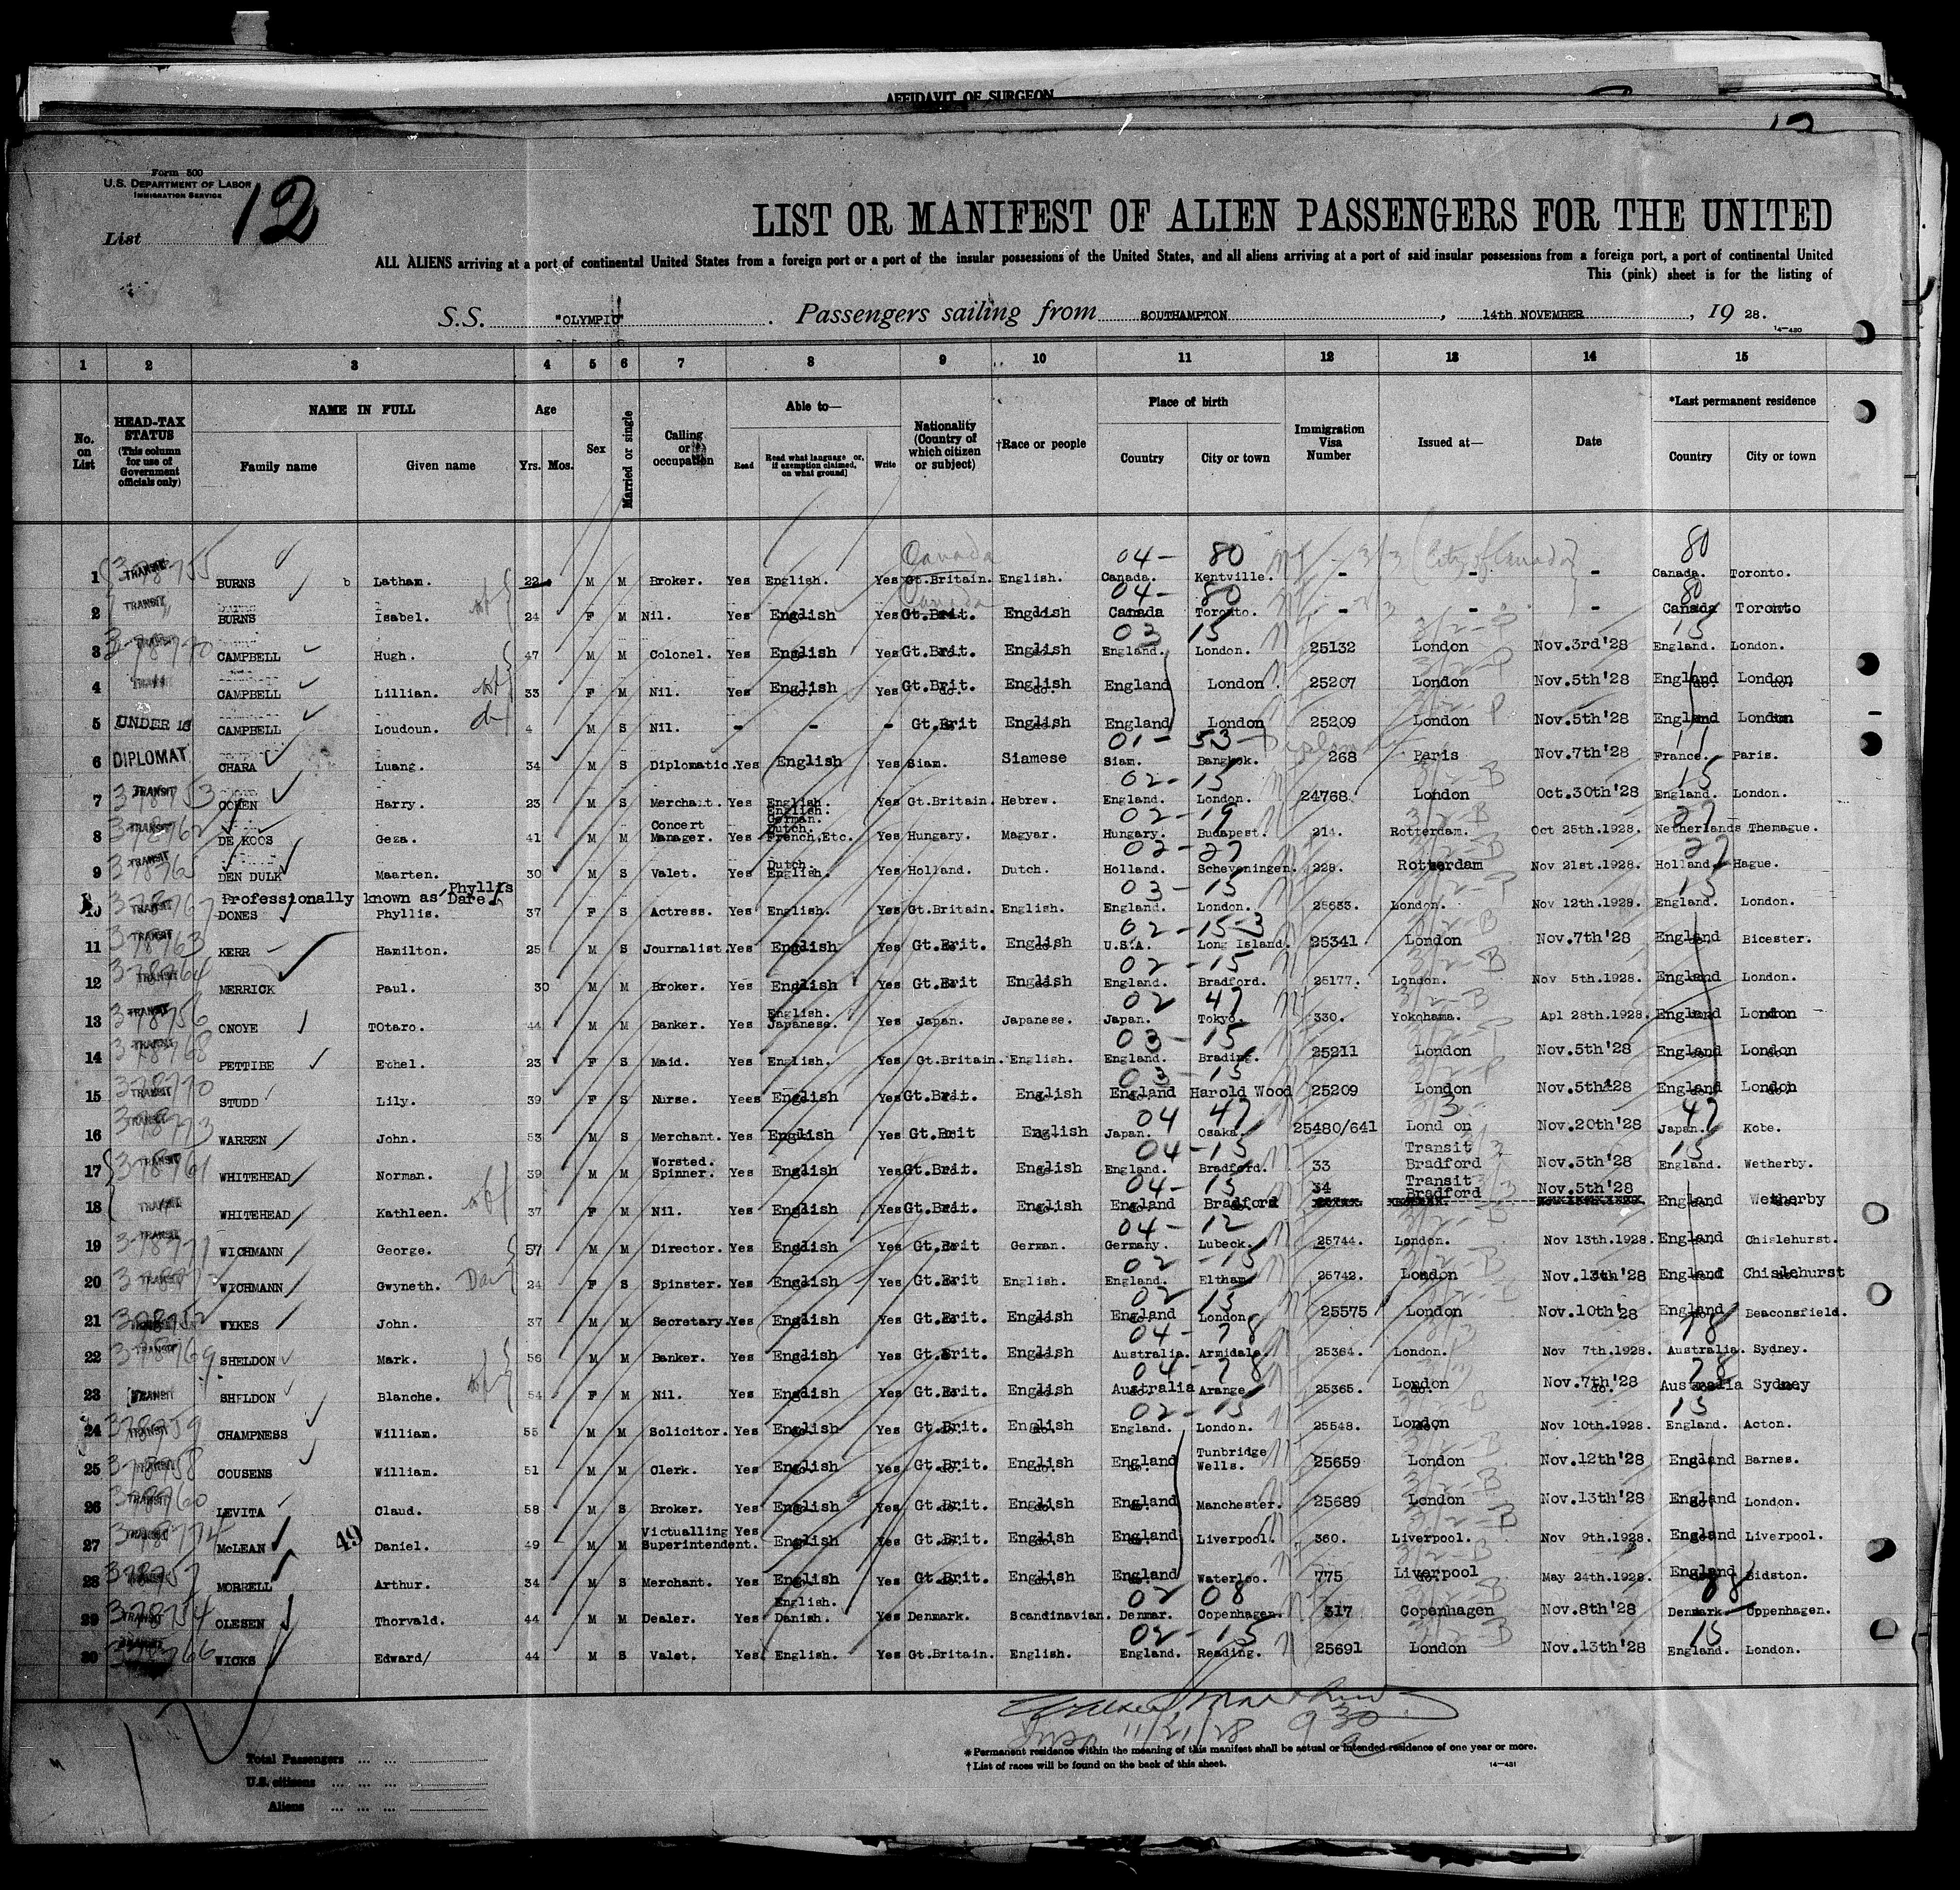 AFFIDAVIT OF SURGEON
Form 500
U.S. DEPARTMENT OF LABOR
IMMIGRATION SERVICE
List 12
LIST OR MANIFEST OF ALIEN PASSENGERS FOR THE UNITED
ALL ALIENS arriving at a port of continental United States from a foreign port or a port of the insular possessions of the United States, and all aliens arriving at a port of said insular possessions from a foreign port, a port of continental United
This (pink) sheet is for the listing of
S.S. "OLYMPIC" . Passengers sailing from SOUTHAMPTON , 14th NOVEMBER , 19 28.
14—430
1 2 3 4 5 6 7 8 9 10 11 12 13 14 15
No. on List
HEAD-TAX STATUS (This column for use of Government officials only)
NAME IN FULL
Family name Given name
Age
Yrs. Mos.
Sex
Married or single
Calling or occupation
Able to—
Read Read what language [or, if exemption claimed, on what ground] Write
Nationality (Country of which citizen or subject)
†Race or people
Place of birth
Country City or town
Immigration Visa Number
Issued at—
Date
*Last permanent residence
Country City or town
Canada 04- 80 80
1 TRANSIT BURNS b Latham. 22 M M Broker. Yes English. Yes Gt.Britain. English. Canada. Kentville. - - - Canada. Toronto.
04- 80 80
2 TRANSIT BURNS Isabel. 24 F M Nil. Yes English Yes Gt.Brit. English Canada Toronto. - - - Canada Toronto
03 15 15
3 CAMPBELL Hugh. 47 M M Colonel. Yes English Yes Gt.Brit. English England. London. 25132 London Nov.3rd'28 England. London.
4 CAMPBELL Lillian. 33 F M Nil. Yes English Yes Gt.Brit. English England London. 25207 London Nov.5th'28 England London
5 UNDER 16 CAMPBELL Loudoun. 4 M S Nil. - - - Gt.Brit English England London 25209 London Nov.5th'28 England London
01- 53- 11
6 DIPLOMAT CHARA Luang. 34 M S Diplomatic. Yes English Yes Siam. Siamese Siam. Bangkok. 268 Paris Nov.7th'28 France. Paris.
02- 15 15
7 TRANSIT COHEN Harry. 23 M S Merchant. Yes English. Yes Gt.Britain. Hebrew. England. London. 24768 London Oct.30th'28 England. London.
02-19 27
8 TRANSIT DE KOOS Geza. 41 M M Concert Manager. Yes English. German. Dutch. French,Etc. Yes Hungary. Magyar. Hungary. Budapest. 214. Rotterdam. Oct 25th.1928. Netherlands Themague.
02-27 27
9 TRANSIT DEN DULK Maarten. 30 M S Valet. Yes Dutch. English. Yes Holland. Dutch. Holland. Scheveningen. 228. Rotterdam Nov 21st.1928. Holland. Hague.
Professionally known as "Phyllis Dare"
03-15 15
10 TRANSIT DONES Phyllis. 37 F S Actress. Yes English. Yes Gt.Britain. English. England. London. 25633. London. Nov 12th.1928. England. London.
02-15-3
11 TRANSIT KERR Hamilton. 25 M S Journalist. Yes English Yes Gt.Brit. English U.S.A. Long Island. 25341 London Nov.7th'28 England Bicester.
02-15
12 TRANSIT MERRICK Paul. 30 M M Broker. Yes English Yes Gt.Brit English England. Bradford. 25177. London. Nov 5th.1928. England London.
02 47
13 TRANSIT ONOYE TOtaro. 44 M M Banker. Yes English. Japanese. Yes Japan. Japanese. Japan. Tokyo. 330. Yokohama. Apl 28th.1928. England London
03-15
14 TRANSIT PETTIBE Ethel. 23 F S Maid. Yes English. Yes Gt.Britain. English. England. Brading. 25211 London Nov.5th'28 England London
03-15
15 TRANSIT STUDD Lily. 39 F S Nurse. Yees English Yes Gt.Brit. English England Harold Wood 25209 London Nov.5th'28 England London
04 47 47
16 WARREN John. 53 M S Merchant. Yes English Yes Gt.Brit English Japan. Osaka. 25480/641 Lond on Nov.20th'28 Japan. Kobe.
04-15 15
17 TRANSIT WHITEHEAD Norman. 39 M M Worsted. Spinner. Yes English Yes Gt.Brit. English England. Bradford. 33 Transit Bradford Nov.5th'28 England. Wetherby.
04-15
18 TRANSIT WHITEHEAD Kathleen. 37 F M Nil. Yes English Yes Gt.Brit. English England Bradford 34 Transit Bradford Nov.5th'28 England Wetherby
04-12
19 TRANSIT WICHMANN George. 57 M M Director. Yes English Yes Gt.Brit German. Germany. Lubeck. 25744. London. Nov 13th.1928. England Chislehurst.
02-15
20 TRANSIT WICHMANN Gwyneth. 24 F S Spinster. Yes English Yes Gt.Brit English. England. Eltham 25742. London Nov.13th'28 England Chislehurst
02 15
21 WYKES John. 37 M M Secretary. Yes English Yes Gt.Brit. English England London 25575 London Nov.10th'28 England Beaconsfield.
04-78 78
22 TRANSIT SHELDON Mark. 56 M M Banker. Yes English Yes Gt.Brit. English Australia. Armidale. 25364. London. Nov 7th.1928. Australia. Sydney.
04-78 78
23 TRANSIT SHELDON Blanche. 54 F M Nil. Yes English Yes Gt.Brit. English Australia Arange 25365. London Nov.7th'28 Australia Sydney
02-15 15
24 TRANSIT CHAMPNESS William. 55 M M Solicitor. Yes English Yes Gt.Brit. English England. London. 25548. London Nov 10th.1928. England. Acton.
25 COUSENS William. 51 M M Clerk. Yes English Yes Gt.Brit. English England Tunbridge Wells. 25659 London Nov.12th'28 England Barnes.
26 TRANSIT LEVITA Claud. 58 M S Broker. Yes English Yes Gt.Brit. English England Manchester. 25689 London Nov.13th'28 England London.
27 McLEAN 49 Daniel. 49 M M Victualling Superintendent. Yes English Yes Gt.Brit. English England Liverpool. 360. Liverpool. Nov 9th.1928. England Liverpool.
28 MORRELL Arthur. 34 M S Merchant. Yes English Yes Gt.Brit. English England Waterloo. 775 Liverpool May 24th.1928. England Bidston.
02 08 08
29 TRANSIT OLESEN Thorvald. 44 M M Dealer. Yes English. Danish. Yes Denmark. Scandinavian. Denmar. Copenhagen. 317 Copenhagen Nov.8th'28 Denmark Coppenhagen.
02-15 15
30 WICKS Edward/ 44 M S Valet. Yes English. Yes Gt.Britain. English. England. Reading. 25691 London Nov.13th'28 England. London.
11/21/28 930
*Permanent residence within the meaning of this manifest shall be actual or intended residence of one year or more.
†List of races will be found on the back of this sheet.
14—431
Total Passengers ... ...
U.S. citizens ... ... ...
Aliens ... ... ...